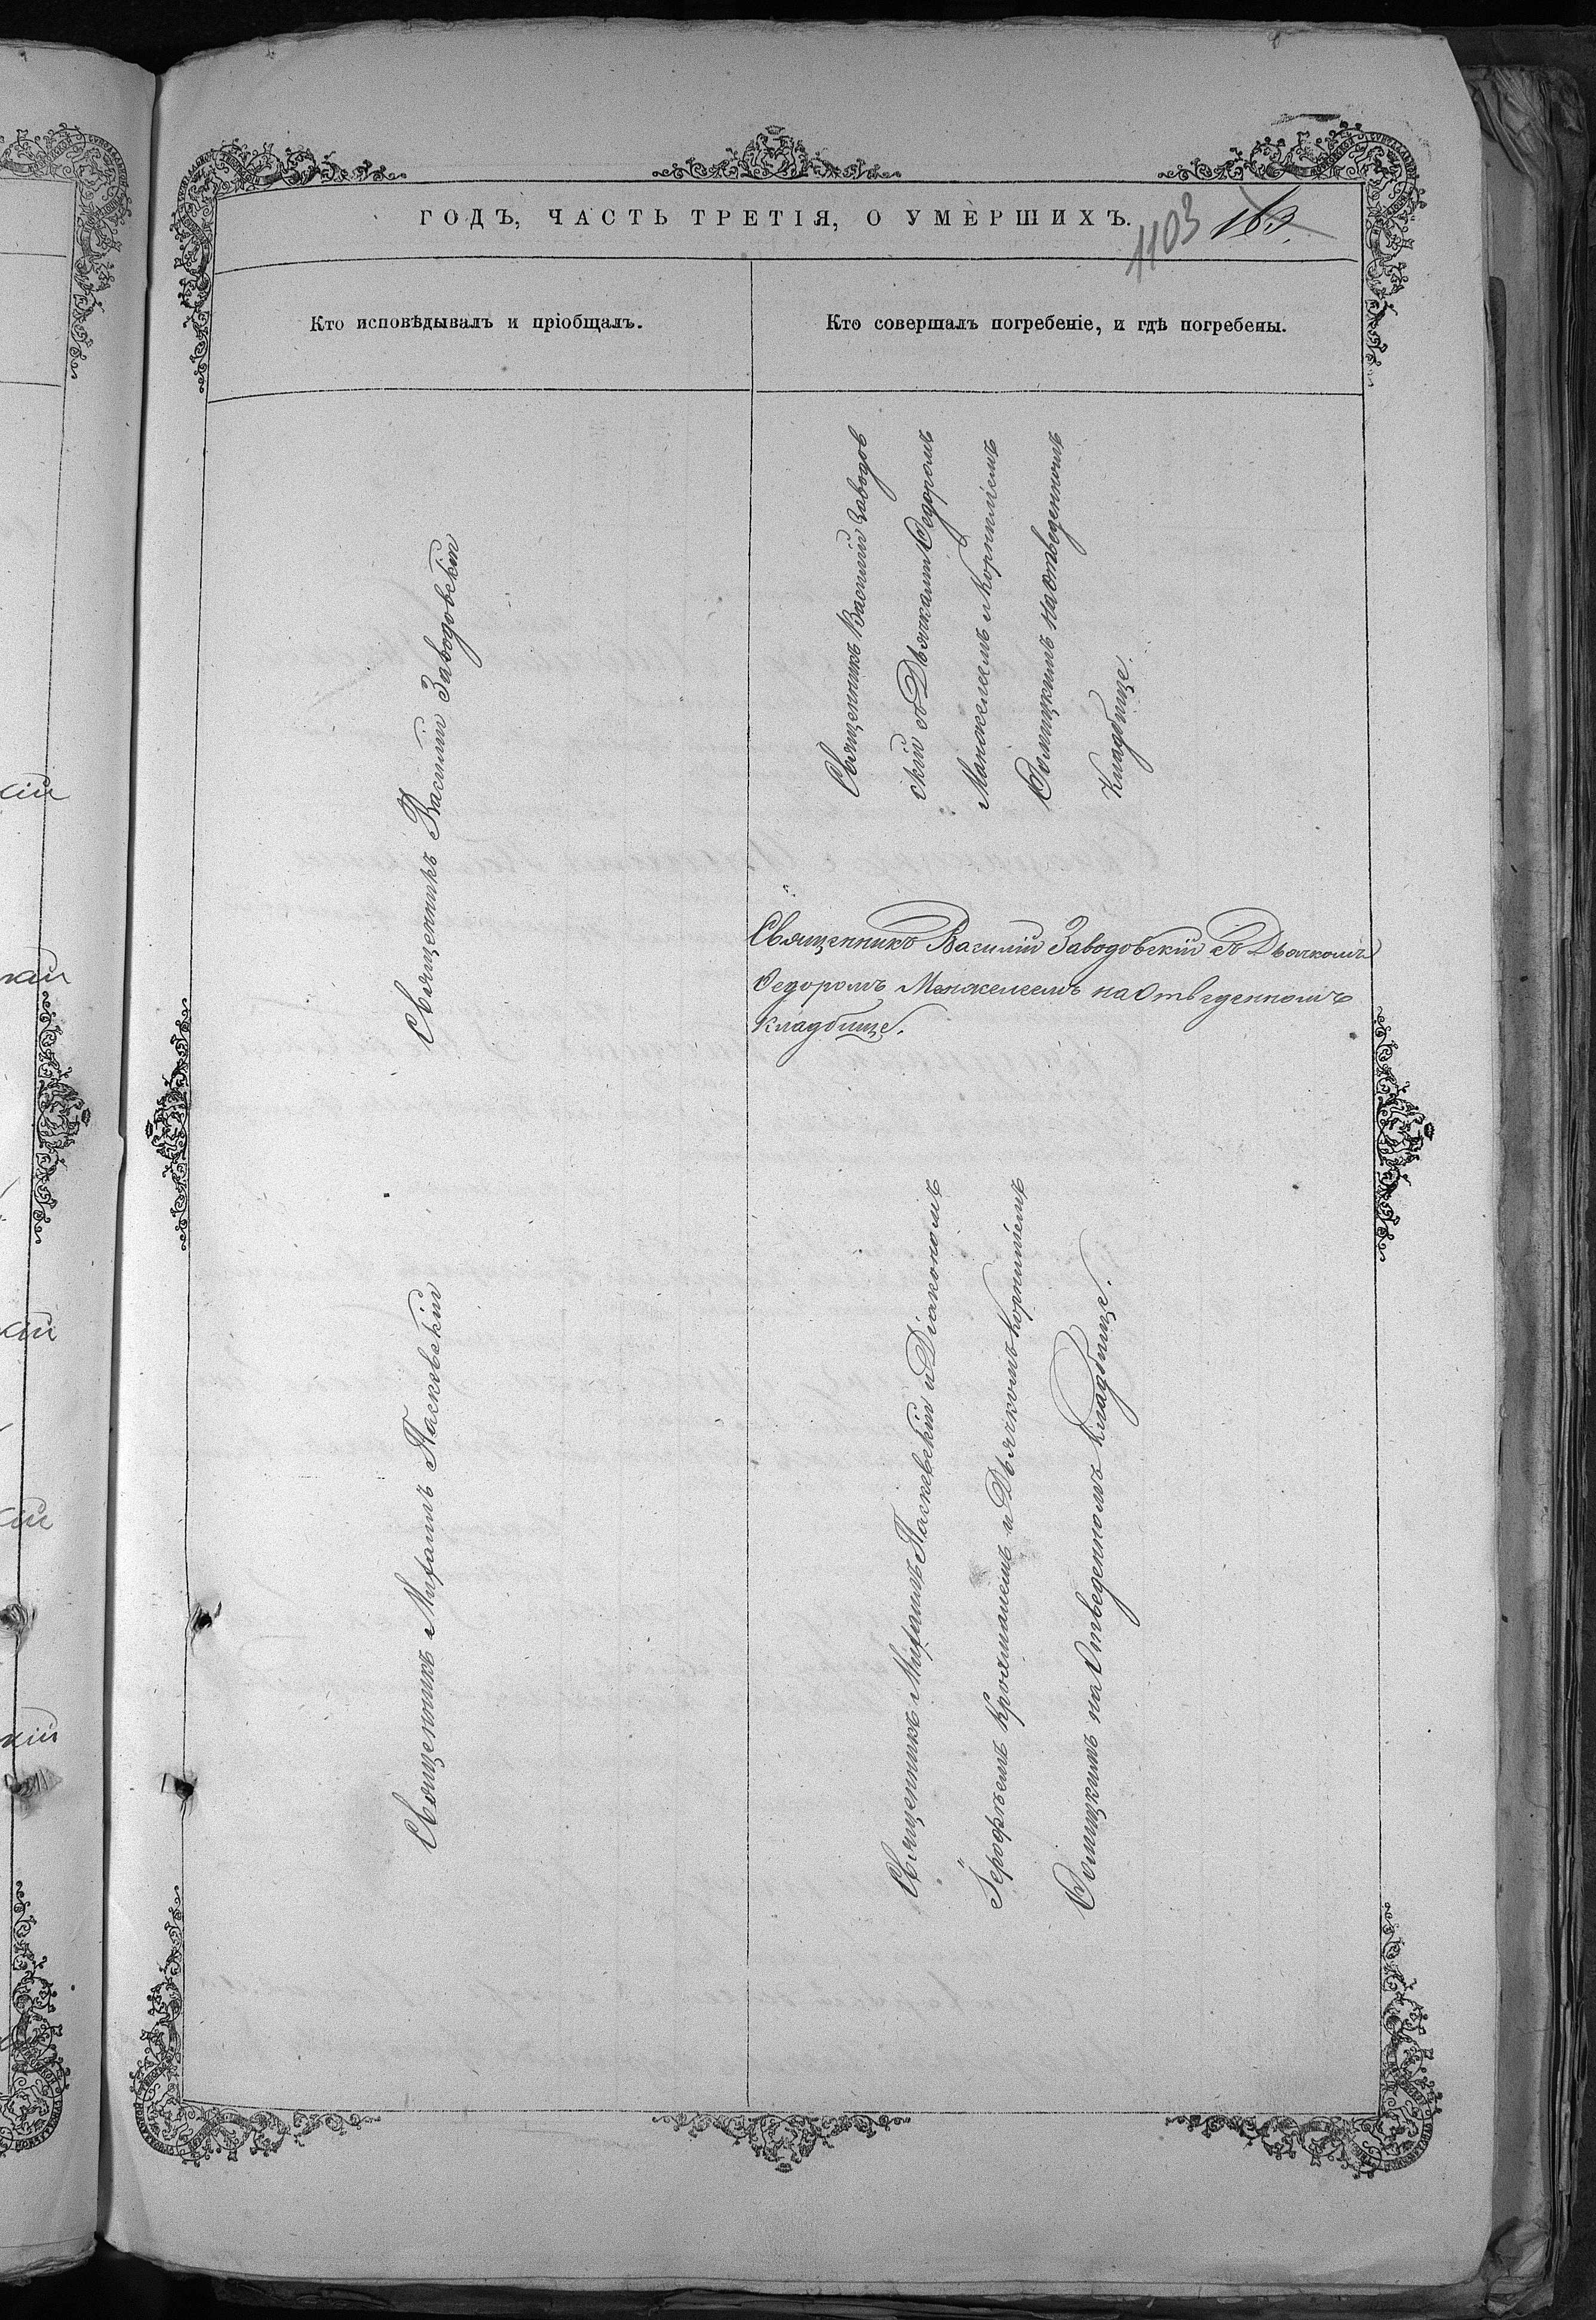 ГОДЪ, ЧАСТЬ ТРЕТІЯ, О УМЕРШИХЪ.
1103
163.
Кто исповѣдывалъ и пріобщалъ.
Кто совершалъ погребеніе, и гдѣ погребены.
Священникъ Василій Заводовскій
Священникъ Василій Заводов
скій съ Дьячками Федоромъ
Манжелеемъ и Корниліемъ
Сомицкимъ на отведенномъ
Кладбище.
Священникъ Василій Заводовскій съ Дьячкомъ
Федоромъ Манжелеемъ на Отведенномъ
Кладбище.
Священникъ Михаилъ Паскевскій
Священникъ Михаилъ Паскевскій и Діакономъ
Іерофѣемъ и Дьячкомъ Корниліемъ
Сомицкимъ на Отведенномъ Кладбище.
кій
кій
кій
кій
кій